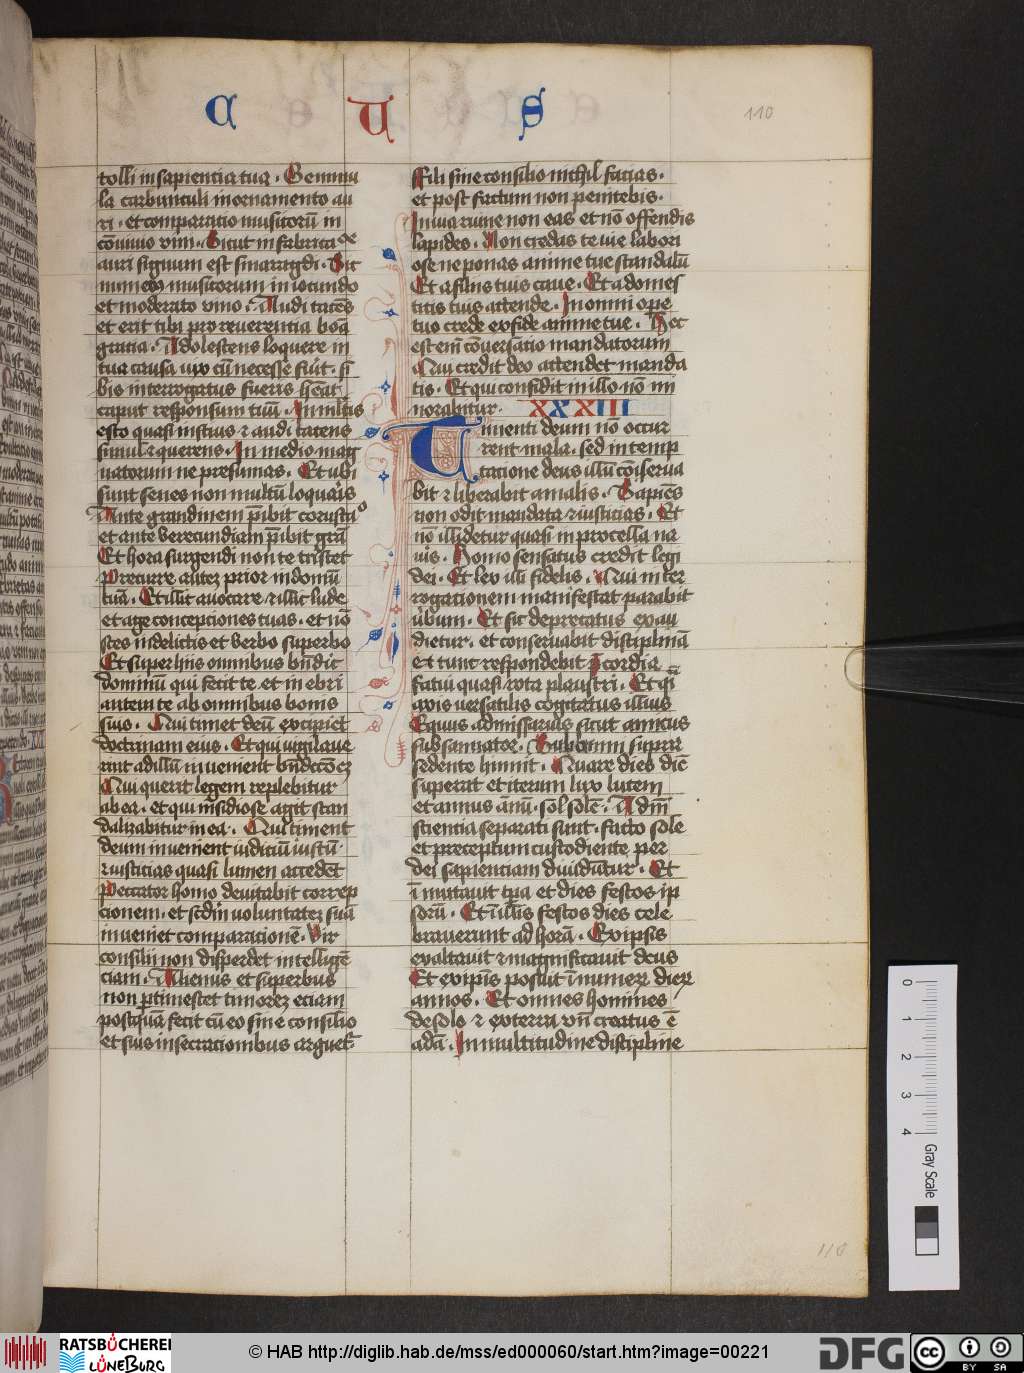 C U S
110
tolli in sapientia tua . Gemmu
la carbunculi in ornamento au
ri . et comparatio musicorū in
cōviuio vini . Sicut in fabricatoe
auri signum est smaragdi . Sic
numerus musicorum in iocundo
et moderato vino . Audi tacēs
et erit tibi pro reverentia bōa
gratia . Adolescens loquere in
tua causa vix cū necesse fūit . si
bis interrogatus fueris heāt
caput responsum tuū . In mltis
esto quasi inscius ⁊ audi tacens
simul ⁊ querens . In medio mag
natorum ne presumas . Et ubi
sunt senes non multū loquaris
Ante grandinem pibit corusca
et ante verecundiam pibit grā
Et hora surgendi non te tristet
Precurre autez prior in domū
tuā . Et illic auocare ⁊ illic lude
et age conceptiones tuas . et nō
in delictis et verbo superbo
Et super hiis omnibus bndic
dominū qui fecit te et inebri
antem te ab omnibus bonis
suis . Qui timet deū excipiet
doctrinam eius . Et qui vigilaue
rint ad illū invenient bndccōez
Qui querit legem replebitur
ab ea . et qui insidiose agit scan
dalizabitur in ea . Qui timent
deum invenient iudiciū iustū
⁊ iusticias quasi lumen accēdēt
Peccator homo devitabit correp
cionem . et scdm voluntatez suā
inveniet comparationē . Vir
consilii non disperdet intelligē
ciam . Alienus et superbus
non ptimescet timorez eciam
postquā fecit cū eo sine consilio
et suis insectacionibus arguet
Fili sine consilio nichil facias .
et post factum non penitebis .
In via ruine non eas et nō offendis
lapides . Non credas te vie labori
ose ne ponas anime tue scandalū
Et a filiis tuis cave . Et a domes
ticis tuis attende . In omni ope
tuo crede ex fide anime tue . Hec
est enī cōversatio mandatorum
Qui credit deo attendet manda
tis . Et qui confidit in illo nō mi
norabitur . XXXIII
Timenti deum nō occur
rent mala . sed in temp
tatione deus illū cōserua
bit ⁊ liberabit a malis . Sapiēs
non odit mandata ⁊ iusticias . Et
nō illidetur quasi in procella na
vis . Homo sensatus credit legi
dei . Et lex illi fidelis . Qui inter
rogationem manifestat parabit
ūbum . Et sic deprecatus exau
dietur . et conservabit disciplinā
et tunc respondebit Pcordia
fatui quasi rota plaustri . Et qi
axis versatilis cogitatus illius
Equus admissarius sicut amicus
subsannator . Sub omni supra
sedente hinnit . Quare dies diē
superat et iterum lux lucem
et annus ānū . sol solē . A dni
scientia separati sunt . facto sole
et preceptum custodiente per
dei sapienciam diuidūtur . Et
ī mutavit tpa et dies festos ip
sorū . Et ī illis festos dies cele
braverunt ad horā . Ex ipsis
exaltavit ⁊ magnificavit deus
Et ex ipis posuit ī numerz dierz
annos . Et omnes homines
de solo ⁊ ex terra vn creatus ē
adā . In multitudine discipline
110
0 1 2 3 4 Gray Scale
RATSBÜCHEREI LÜNEBURG
© HAB http://diglib.hab.de/mss/ed000060/start.htm?image=00221
DFG
cc BY SA